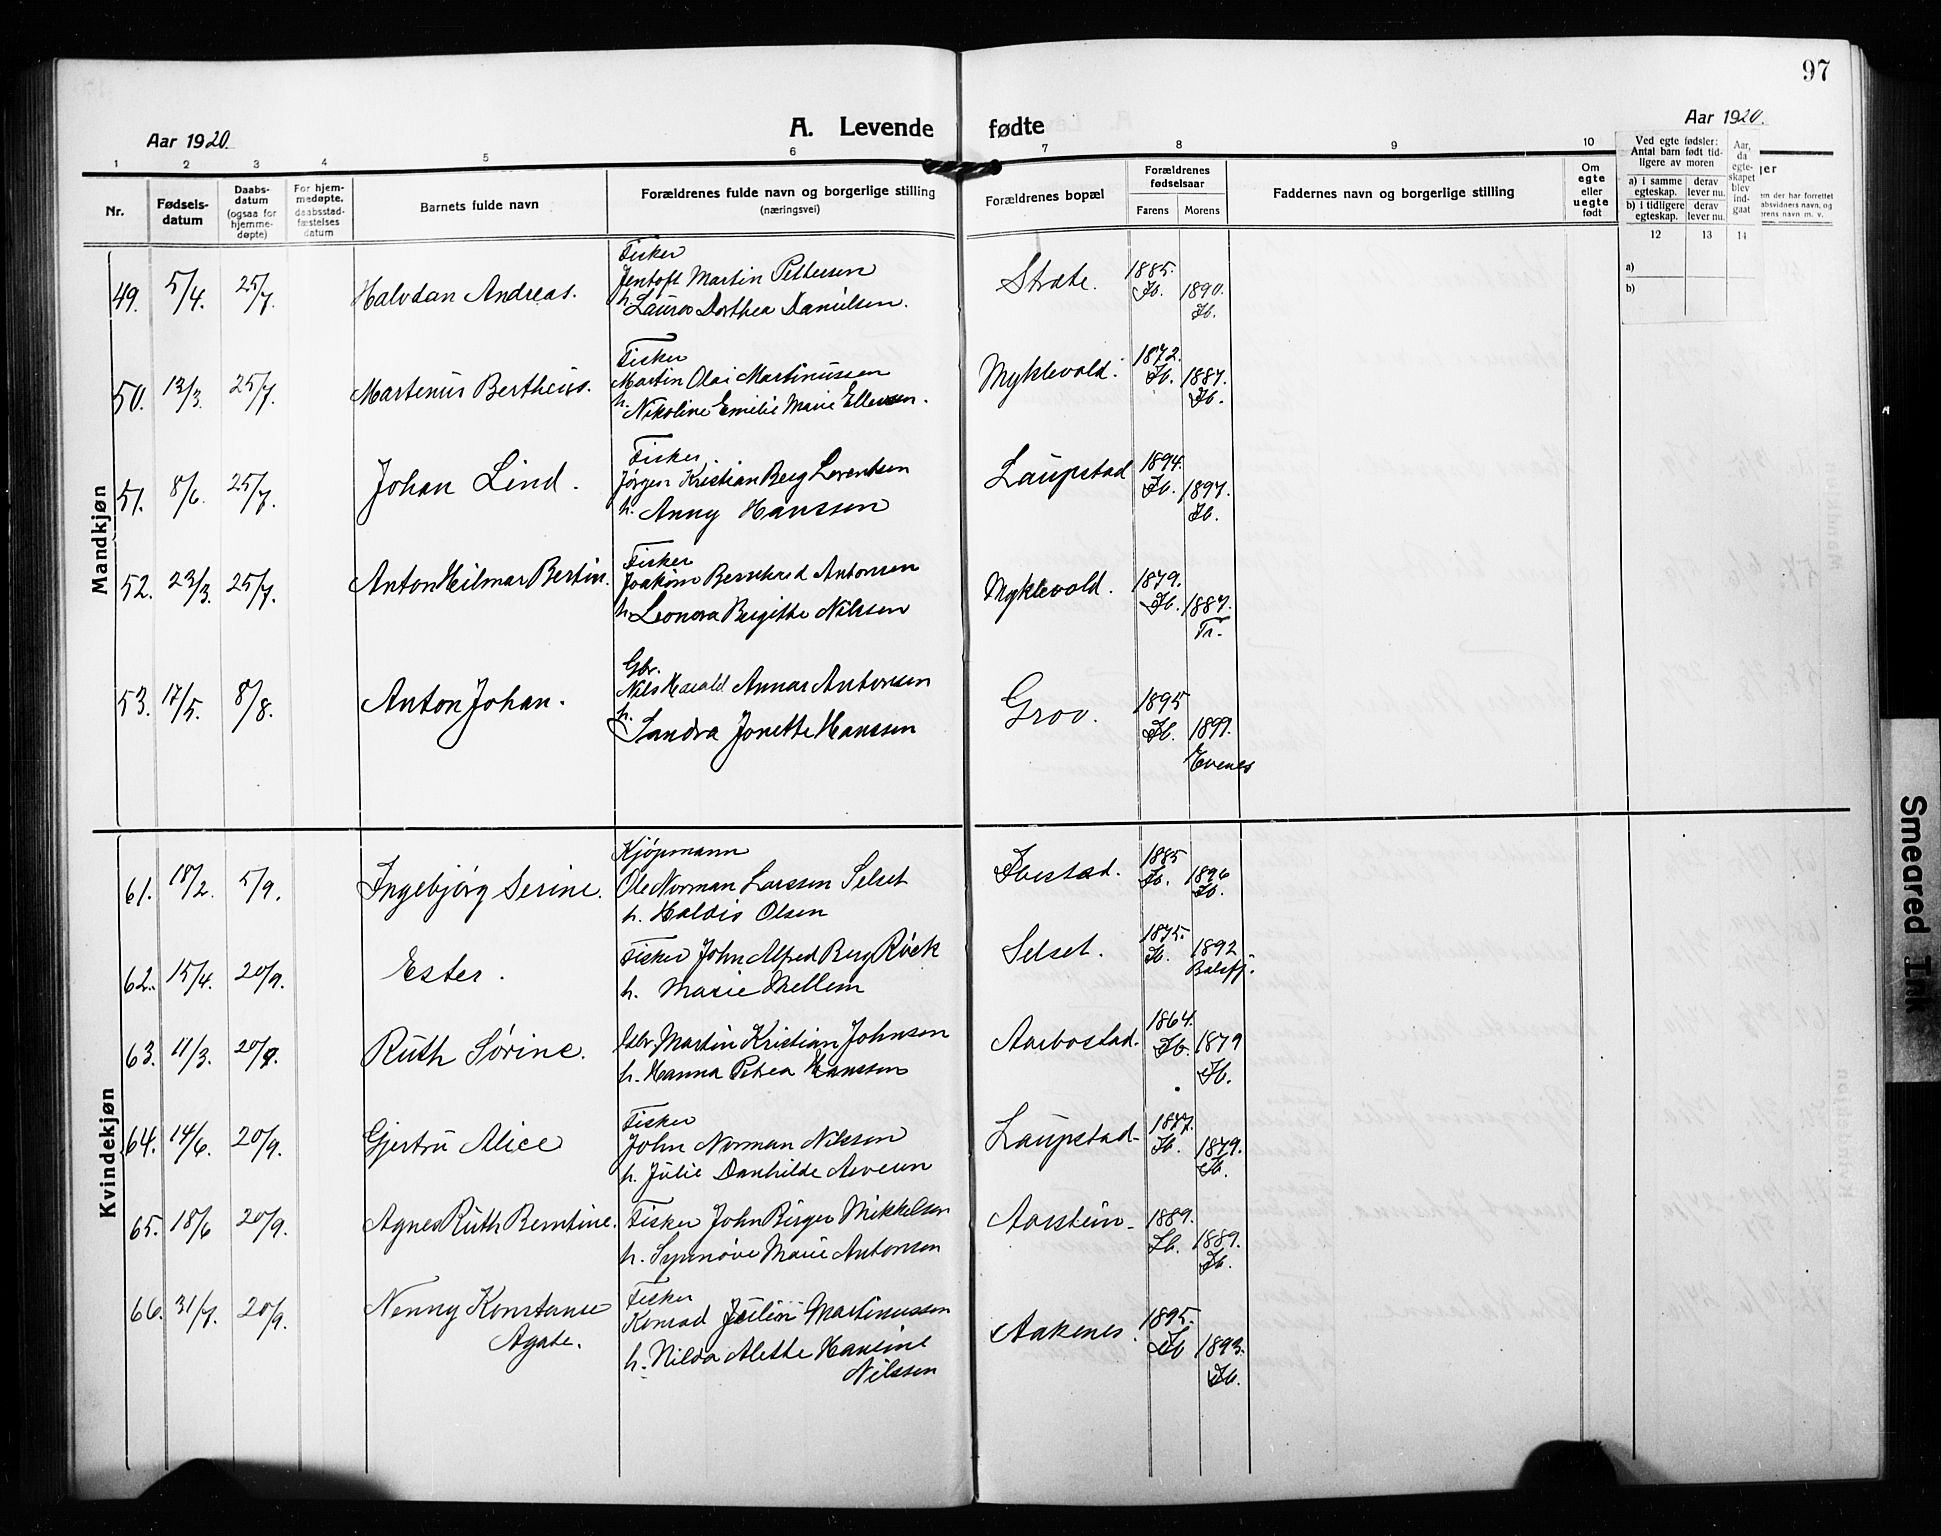 97
Aar 1920.
A. Levende fødte
Aar 1920.
1 2 3 4 5 6 7 8 9 10
Nr.
Fødsels-
datum
Daabs-
datum
(ogsaa for
hjemme-
døpte)
For hjem-
medøpte.
daabsstad-
fæstelses
datum
Barnets fulde navn
Forældrenes fulde navn og borgerlige stilling
(næringsvei)
Forældrenes bopæl
Forældrenes
fødselsaar
Farens Morens
Faddernes navn og borgerlige stilling
Om
egte
eller
uegte
født
Ved egte fødsler:
Antal barn født tid-
ligere av moren
a) i samme
egteskap.
derav
lever nu.
b) i tidligere
egteskap.
derav
lever nu.
Aar,
da
egte-
skapet
blev
ind-
gaat
12 13 14
a)
b)
Mandkjøn
49. 5/4. 25/7. Halvdan Andreas.
Fisker
Jentoft Martin Pettersen
h. Laura Dorthea Danielsen.
Strate. 1885. Ib. 1890. Ib.
50. 13/3. 25/7. Martenus Bertheus.
Fisker
Martin Olai Martinussen
h. Nikoline Emilie Marie Ellevsen.
Myklevold. 1872. Ib. 1887. Ib.
51. 8/6. 25/7. Johan Lind.
Fisker
Jørgen Kristian Berg Lorentsen
h. Anny Hanssen
Laupstad 1894. Ib. 1897. Ib.
52. 23/3. 25/7. Anton Hilmar Bertin.
Fisker
Joakim Bernhard Antonsen
h. Leonora Birgitte Nilssen
Myklevold. 1879. Ib. 1887. Tr.
53. 17/5. 8/8. Anton Johan.
Gbr.
Nils Harald Annar Antonsen
h. Sandra Jonette Hanssen
Grov. 1895 Ib. 1899. Evenes
Kvindekjøn
61. 18/2. 5/9. Ingebjørg Serine.
Kjøpmann
Ole Norman Larssen Selset
h. Haldis Olsen
Ibestad. 1885 Ib. 1896 Ib.
62. 15/4. 20/9. Ester.
Fisker John Alfred Berg Røek
h. Marie Mellem
Selset. 1875. Ib. 1892 Balsfj.
63. 11/3. 20/9. Ruth Sørine.
Gbr. Martin Kristian Johnsen
h. Hanna Petrea Hanssen
Aarbostad. 1864. Ib. 1879 Ib.
64. 14/6. 20/9. Gjertru Alice
Fisker
John Norman Nilssen
h. Julie Danhilde Arvesen
Laupstad 1877. Ib. 1879. Ib.
65. 18/6 20/9. Agnes Ruth Berntine.
Fisker John Birger Mikkelsen
h. Synnøve Marie Antonsen
Aarstein 1889. Ib. 1889. Ib.
66. 31/7. 20/9. Nenny Konstanse
Agate.
Fisker
Konrad Julin Martinussen
h. Hilda Alette Hansine
Nilssen
Aakenes. 1895. Ib 1893. Ib.
Smeared Ink